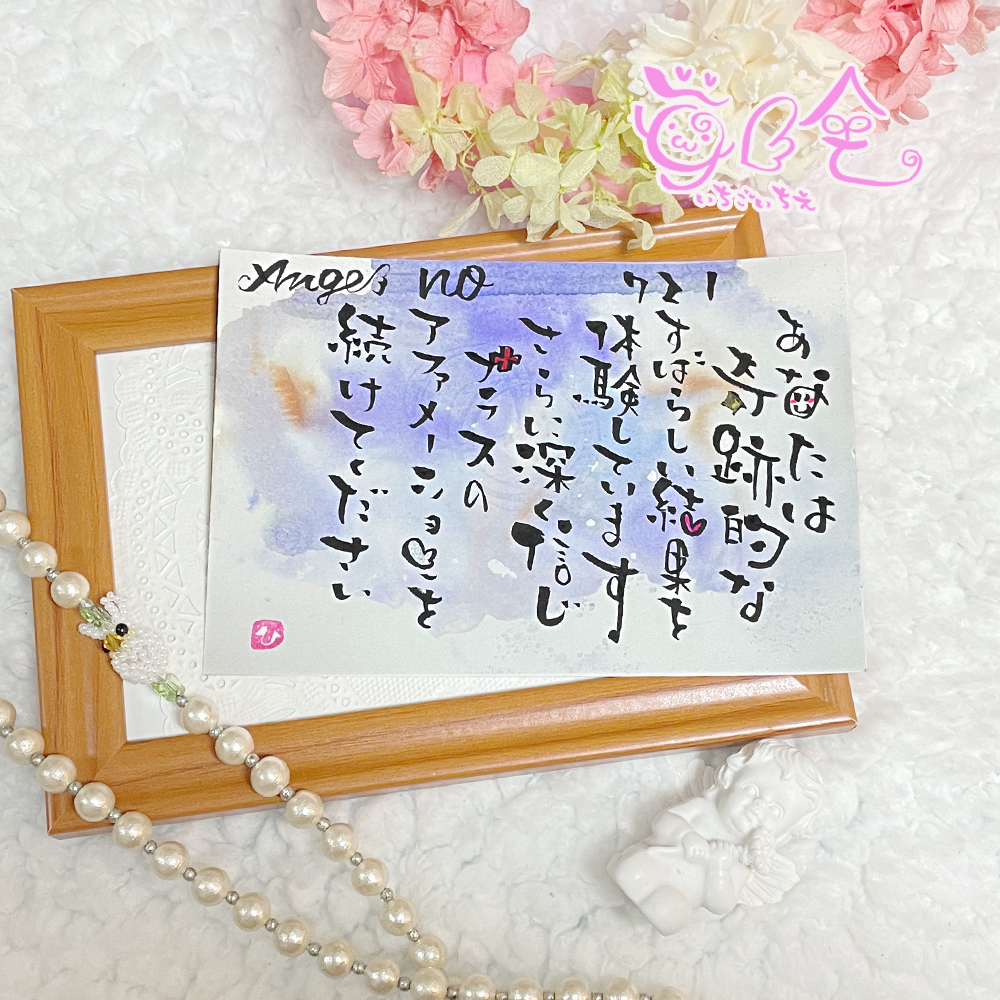 Angel no
あ猫たは
奇跡的な
すばらしい結果を
体験しています
さらに深く信じ
プラスの
アファメーションを
続けてください
いちごいちえ